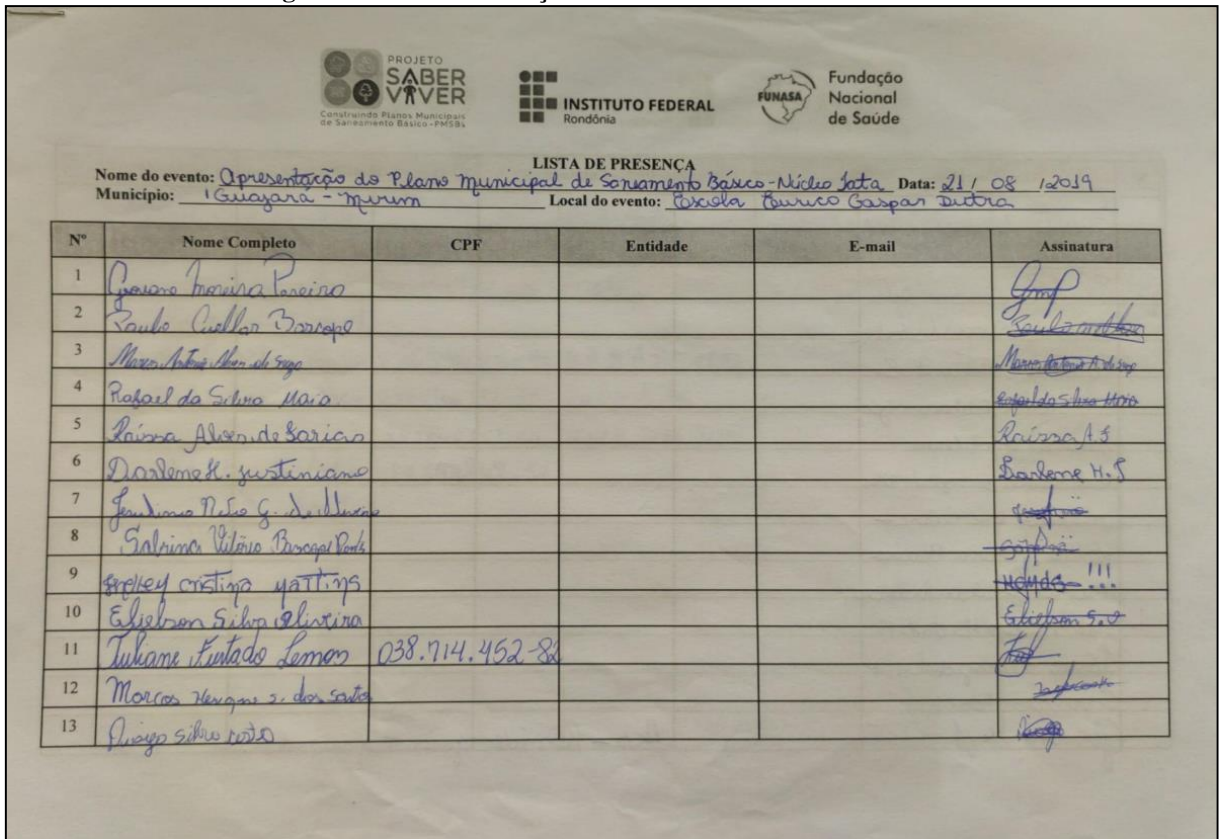 PROJETO
SABER
VIVER
Construindo Planos Municipais
de Saneamento Básico - PMSBs
INSTITUTO FEDERAL
Rondônia
FUNASA
Fundação
Nacional
de Saúde
LISTA DE PRESENÇA
Nome do evento: Apresentação do Plano Municipal de Saneamento Básico - Núcleo Iata Data: 21 / 08 /2019
Município: Guajará - Mirim Local do evento: Escola Eurico Gaspar Dutra
Nº Nome Completo CPF Entidade E-mail Assinatura
1 Moreira
2 Paulo Cuellar
3 Marco Antonio Alves de
4 Rafael da Silva Maia Rafael da Silva Maia
5 Raissa Alves de Farias Raissa A. F
6 Darlene H. Justiniano Darlene H. J
7
8 Sabrina Vitória
9 cristina
10 Elielson Silva Oliveira Elielson S. O
11 Furtado Lemos 038.714.452-82
12 Marcos S. dos Santos
13 Silva